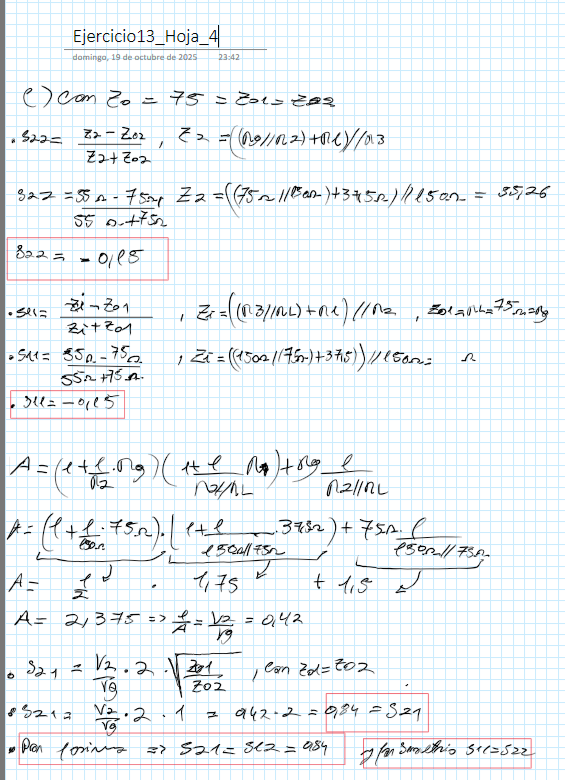 Ejercicio13_Hoja_4
domingo, 19 de octubre de 2025 23:42
c) Con Z0 = 75 = Z01 = Z02
• S22 = (Z2 - Z02) / (Z2 + Z02) , Z2 = ((Rg//R2) + R1)//R3
S22 = (55Ω - 75Ω) / (55Ω + 75Ω) Z2 = ((75Ω//150Ω) + 37,5Ω)//150Ω = 35,26
S22 = -0,15
• S11 = (Zi - Z01) / (Zi + Z01) , Zi = ((R3//RL) + R1)//R2 , Z01 = RL = 75Ω = Rg
• S11 = (55Ω - 75Ω) / (55Ω + 75Ω) , Zi = ((150Ω//75Ω) + 37,5))//150Ω = Ω
• S11 = -0,15
A = (1 + 1/R2 · Rg) (1 + 1/(R2//RL) R1) + Rg 1/(R2//RL)
A = (1 + 1/150Ω · 75Ω) · (1 + 1/(150Ω//75Ω) · 37,5Ω) + 75Ω · 1/(150Ω//75Ω)
A = 1/2 · 1,75 + 1,5
A = 2,375 => 1/A = V2/Vg = 0,42
• S21 = V2/Vg · 2 · √(Z01/Z02) , con Z01 = Z02
• S21 = V2/Vg · 2 · 1 = 0,42 · 2 = 0,84 = S21
• Por => S21 = S12 = 0,84 y por Simetría S11 = S22